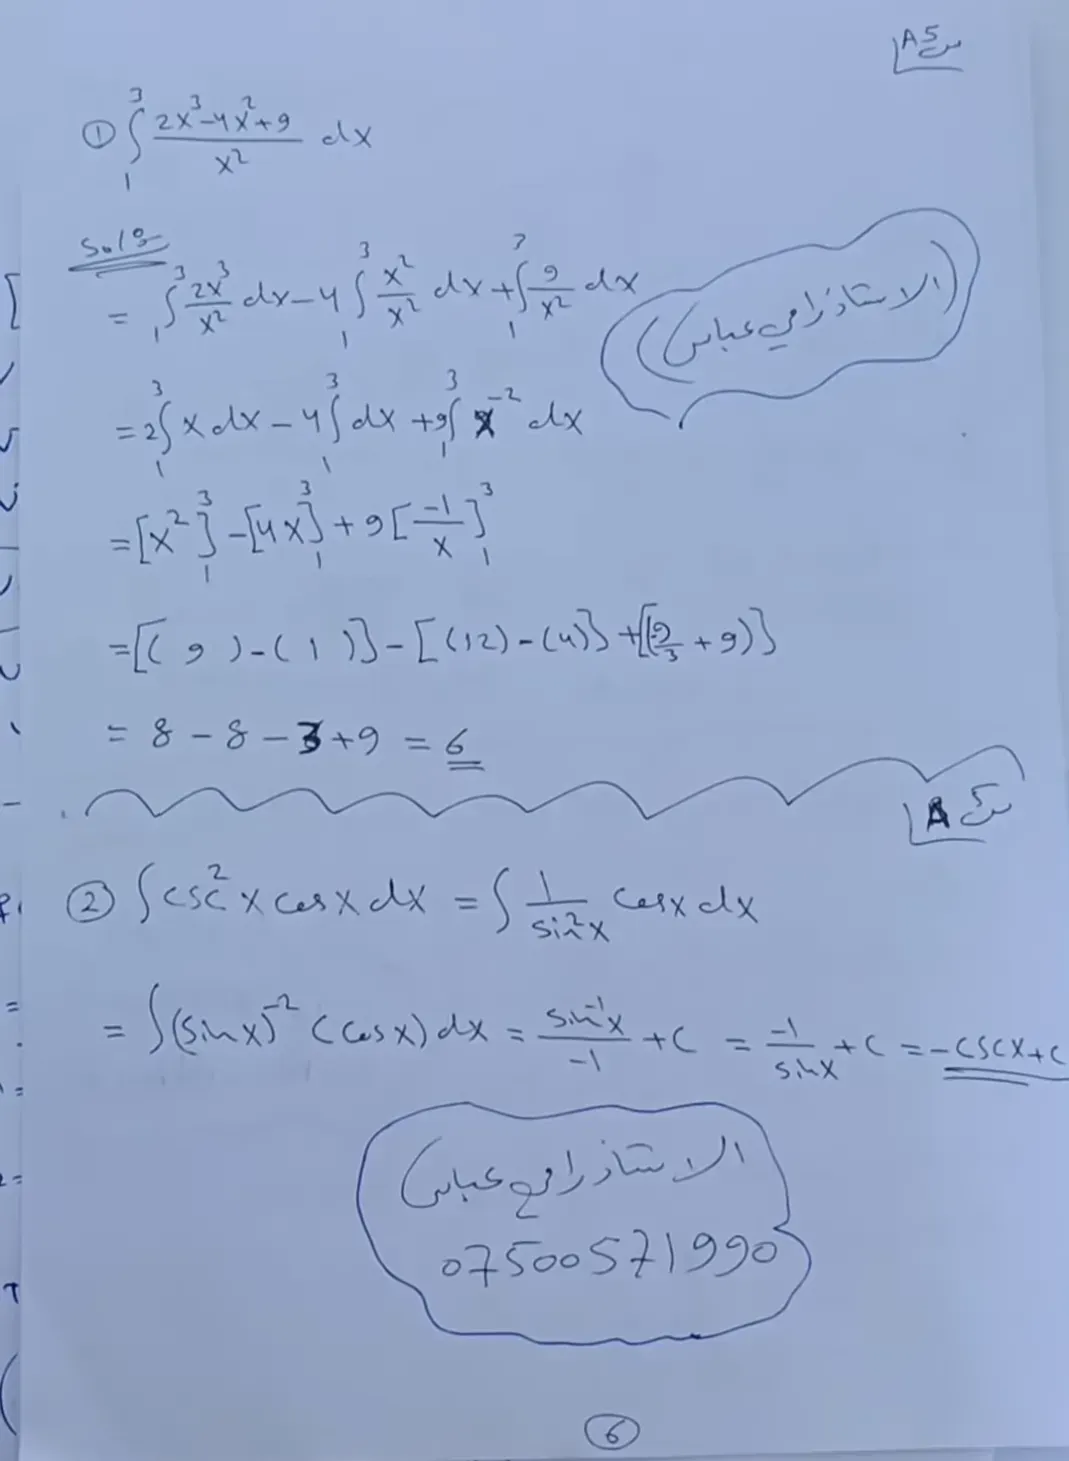 س5 A
① ∫₁³ (2x³-4x²+9)/x² dx
Sol:
= ∫₁³ 2x³/x² dx - 4 ∫₁³ x²/x² dx + ∫₁³ 9/x² dx
(الاستاذ رامي عباس)
= 2∫₁³ x dx - 4∫₁³ dx + 9∫₁³ x⁻² dx
= [x²]₁³ - [4x]₁³ + 9[-1/x]₁³
= [(9)-(1)] - [(12)-(4)] + [(-9/3 + 9)]
= 8 - 8 - 3 + 9 = 6
س5 A
② ∫ csc²x cosx dx = ∫ 1/sin²x cosx dx
= ∫(sinx)⁻² (cosx) dx = sin⁻¹x/-1 + C = -1/sinx + C = -cscx + C
الاستاذ رامي عباس
07500571990
6